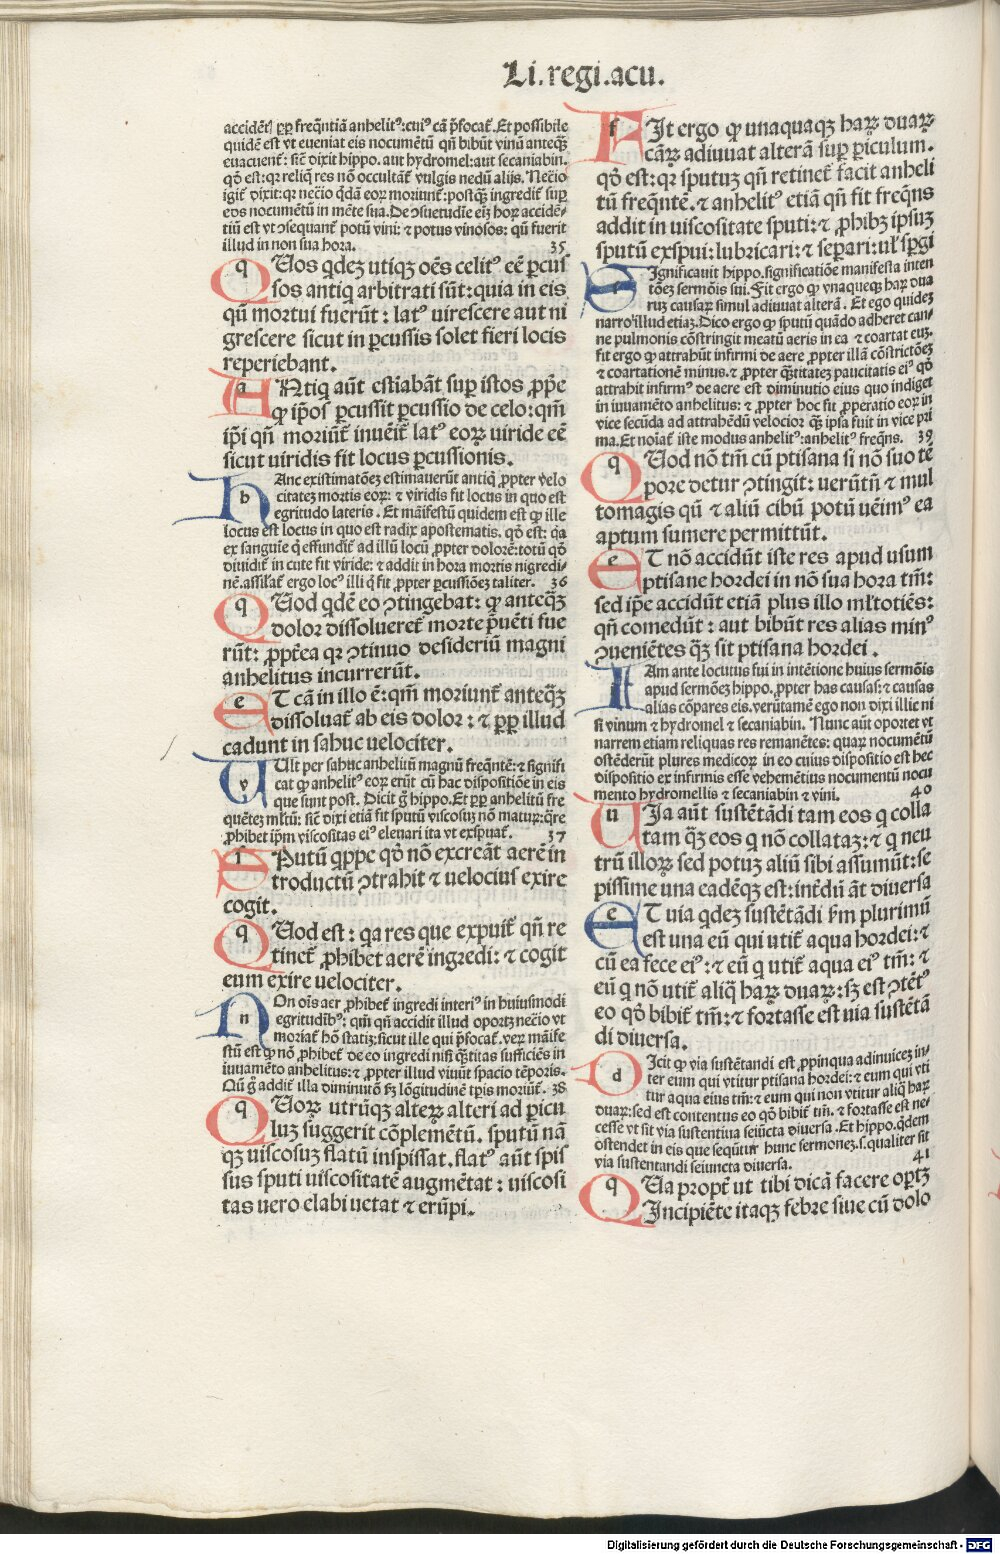 Li. regi. acu.
accidẽt᷒ ꝓp̱ freq̃ntiã anhelitꝰ: cuiꝰ cã p̃focat᷒. Et possibile
quidẽ est vt eueniat eis nocumẽtũ qñ bibũt vinũ anteqȝ
euacuent᷒: sic̃ dixit hippo. aut hydromel: aut secaniabin.
qď est: qꝛ reliq̃ res nõ occultant᷒ vulgis nedũ alijs. Nec̃io
igit᷒ dixit: qꝛ nec̃io q̃dã eoꝝ moriunt᷒: postqȝ ingredit᷒ suꝑ
eos nocumẽtũ in mẽte sua. De ↄsuetudĩe eiȝ hoꝝ accidẽ-
tiũ est vt ↄsequant᷒ potũ vini: ⁊ potus vinosos: qũ fuerit
illud in non sua hora. 35
q Uos q̃deȝ utiqȝ oẽs celitꝰ eẽ ꝑcus
sos antiq̃ arbitrati sũt: quia in eis
qũ mortui fuerũt: latꝰ uirescere aut ni
grescere sicut in ꝑcussis solet fieri locis
reperiebant.
a Ntiq̃ aũt estiabãt suꝑ istos ꝓp̃e
ꝙ ip̃os ꝑcussit ꝑcussio de celo: qm̃
ip̃i qñ moriũt᷒ inuẽit᷒ latꝰ eoꝝ uiride eẽ
sicut uiridis fit locus ꝑcussionis.
h Anc existimatõeȝ estimauerũt antiq̃ ꝓpter velo
citateȝ mortis eoꝝ: ⁊ viridis fit locus in quo est
egritudo lateris. Et mãifestũ quidem est ꝙ ille
locus est locus in quo est radix apostematis. qď est: q̃a
ex sanguĩe q̃ effundit᷒ ad illũ locũ ꝓpter dolorẽ: totũ qď
diuidit᷒ in cute fit viride: ⁊ addit in hora mortis nigredi-
nẽ. assilat᷒ ergo locꝰ illi q̃ fit ꝓpter ꝑcussiõeȝ taliter. 36
q Uod q̃dẽ eo ↄtingebat: ꝙ anteqȝ
dolor dissolueret᷒ morte p̃uẽti fue
rũt: ꝓpt̃ea qꝛ ↄtinuo desideriũ magni
anhelitus incurrerũt.
e T cã in illo ẽ: qm̃ moriunt᷒ anteqȝ
dissoluat᷒ ab eis dolor: ⁊ ꝓp̱ illud
cadunt in sahuc uelociter.
v Ult per sahuc anhelitũ magnũ freq̃ntẽ: ⁊ signifi
cat ꝙ anhelitꝰ eoꝝ erũt cũ hac dispositiõe in eis
que sunt post. Dicit g̃ hippo. Et ꝓp̱ anhelitũ fre
quẽteȝ ml̃tũ: sic̃ dixi etiã fit sputũ viscosuȝ nõ matuꝝ: q̃re
ꝓhibet ip̃m viscositas eiꝰ eleuari ita vt exspuat᷒. 37
s Putũ q̃ppe qď nõ excreãt aerẽ in
troductũ ↄtrahit ⁊ uelocius exire
cogit.
q Uod est: q̃a res que expuit᷒ qñ re
tinet᷒ ꝓhibet aerẽ ingredi: ⁊ cogit
eum exire uelociter.
n On oĩs aer ꝓhibet᷒ ingredi interiꝰ in huiusmodi
egritudĩbꝰ: qm̃ qñ accidit illud oportȝ nec̃io vt
moriat᷒ hõ statiȝ: sicut ille qui p̃focat᷒. veꝝ mãife
stũ est ꝙ nõ ꝓhibet᷒ de eo ingredi nisi q̃titas sufficiẽs in
iuuamẽto anhelitus: ⁊ ꝓpter illud viuũt spacio tẽporis.
Qñ g̃ addit᷒ illa diminutõ fȝ lõgitudinẽ tp̃is moriũt᷒. 38
q Uoꝝ utrũqȝ alteꝝ alteri ad ꝑicu
luȝ suggerit cõplemẽtũ. sputũ nã
qȝ uiscosuȝ flatũ inspissat. flatꝰ aũt spis
sus sputi uiscositatẽ augmẽtat: uiscosi
tas uero elabi uetat ⁊ erũpi.
f It ergo ꝙ unaquaqȝ haꝝ duaꝝ
cãꝝ adiuuat alterã suꝑ ꝑiculum.
qď est: qꝛ sputuȝ qñ retinet᷒ facit anheli
tũ freq̃ntẽ. ⁊ anhelitꝰ etiã qñ fit freq̃ns
addit in uiscositate sputi: ⁊ ꝓhibȝ ipsuȝ
sputũ exspui: lubricari: ⁊ seꝑari: ul̃ sꝑgi
s Ignificauit hippo. significatiõe manifesta inten
tõeȝ sermõis sui. Fit ergo ꝙ vnaqueqȝ haꝝ dua
ruȝ causaꝝ simul adiuuat alterã. Et ego quideȝ
narro illud etiaȝ. Dico ergo ꝙ sputũ quãdo adheret can-
ne pulmonis cõstringit meatũ aeris in ea ⁊ coartat euȝ.
fit ergo ꝙ attrahũt infirmi de aere ꝓpter illã cõstrictõeȝ
⁊ coartationẽ minus. ⁊ ꝓpter q̃titateȝ paucitatis eiꝰ qď
attrahit infirmꝰ de aere est diminutio eius quo indiget
in iuuamẽto anhelitus: ⁊ ꝓpter hoc fit ꝓperatio eoꝝ in
vice secũda ad attrahẽdũ velocior qȝ ipsa fuit in vice pri
ma. Et noĩat᷒ iste modus anhelitꝰ: anhelitꝰ freq̃ns. 39
q Uod nõ tm̃ cũ ptisana si nõ suo tẽ
pore detur ↄtingit: uerũtũ ⁊ mul
tomagis qũ ⁊ aliũ cibũ potũ uẽimꝰ ea
aptum sumere permittũt.
e T nõ accidũt iste res apud usum
ptisane hordei in nõ sua hora tm̃:
sed ip̃e accidũt etiã plus illo ml̃totiẽs:
qñ comedũt: aut bibũt res alias minꝰ
ↄueniẽtes qȝ sit ptisana hordei.
i Am ante locutus fui in intẽtione huius sermõis
apud sermõeȝ hippo. ꝓpter has causas: ⁊ causas
alias cõpares eis. verũtamẽ ego non dixi illic ni
si vinum ⁊ hydromel ⁊ secaniabin. Nunc aũt oportet vt
narrem etiam reliquas res remanẽtes: quaꝝ nocumẽtũ
ostẽderũt plures medicoꝝ in eo cuius dispositio est hec
dispositio ex infirmis esse vehemẽtius nocumẽtũ nocu
mento hydromellis ⁊ secaniabin ⁊ vini. 40
u Ia aũt sustẽtãdi tam eos q̃ colla
tam qȝ eos q̃ nõ collataȝ: ⁊ q̃ neu
trũ illoꝝ sed potuȝ aliũ sibi assumũt: se
pissime una eadẽqȝ est: int̃dũ ãt diuersa
e T uia q̃deȝ sustẽtãdi ẜm plurimũ
est una eũ qui utit᷒ aqua hordei: ⁊
cũ ea fece eiꝰ: ⁊ eũ q̃ utit᷒ aqua eiꝰ tm̃: ⁊
eũ q̃ nõ utit᷒ aliq̃ haꝝ duaꝝ: sȝ est ↄtẽtꝰ
eo qď bibit᷒ tm̃: ⁊ fortasse est uia sustẽtã
di diuersa.
d Icit ꝙ via sustẽtandi est ꝓpinqua adinuiceȝ in-
ter eum qui vtitur ptisana hordei: ⁊ eum qui vti
tur aqua eius tm̃: ⁊ eum qui non vtitur aliq̃ haꝝ
duaꝝ: sed est contentus eo qď bibit᷒ tm̃. ⁊ fortasse est ne-
cesse vt sit via sustentiua seiũcta diuersa. Et hippo. q̃dem
ostendet in eis que seqũtur hunc sermoneȝ. s. qualiter sit
via sustentandi seiuncta diuersa. 41
q Ua propt̃ ut tibi dicã facere optȝ
Incipiẽte itaqȝ febre siue cũ dolo
Digitalisierung gefördert durch die Deutsche Forschungsgemeinschaft - DFG